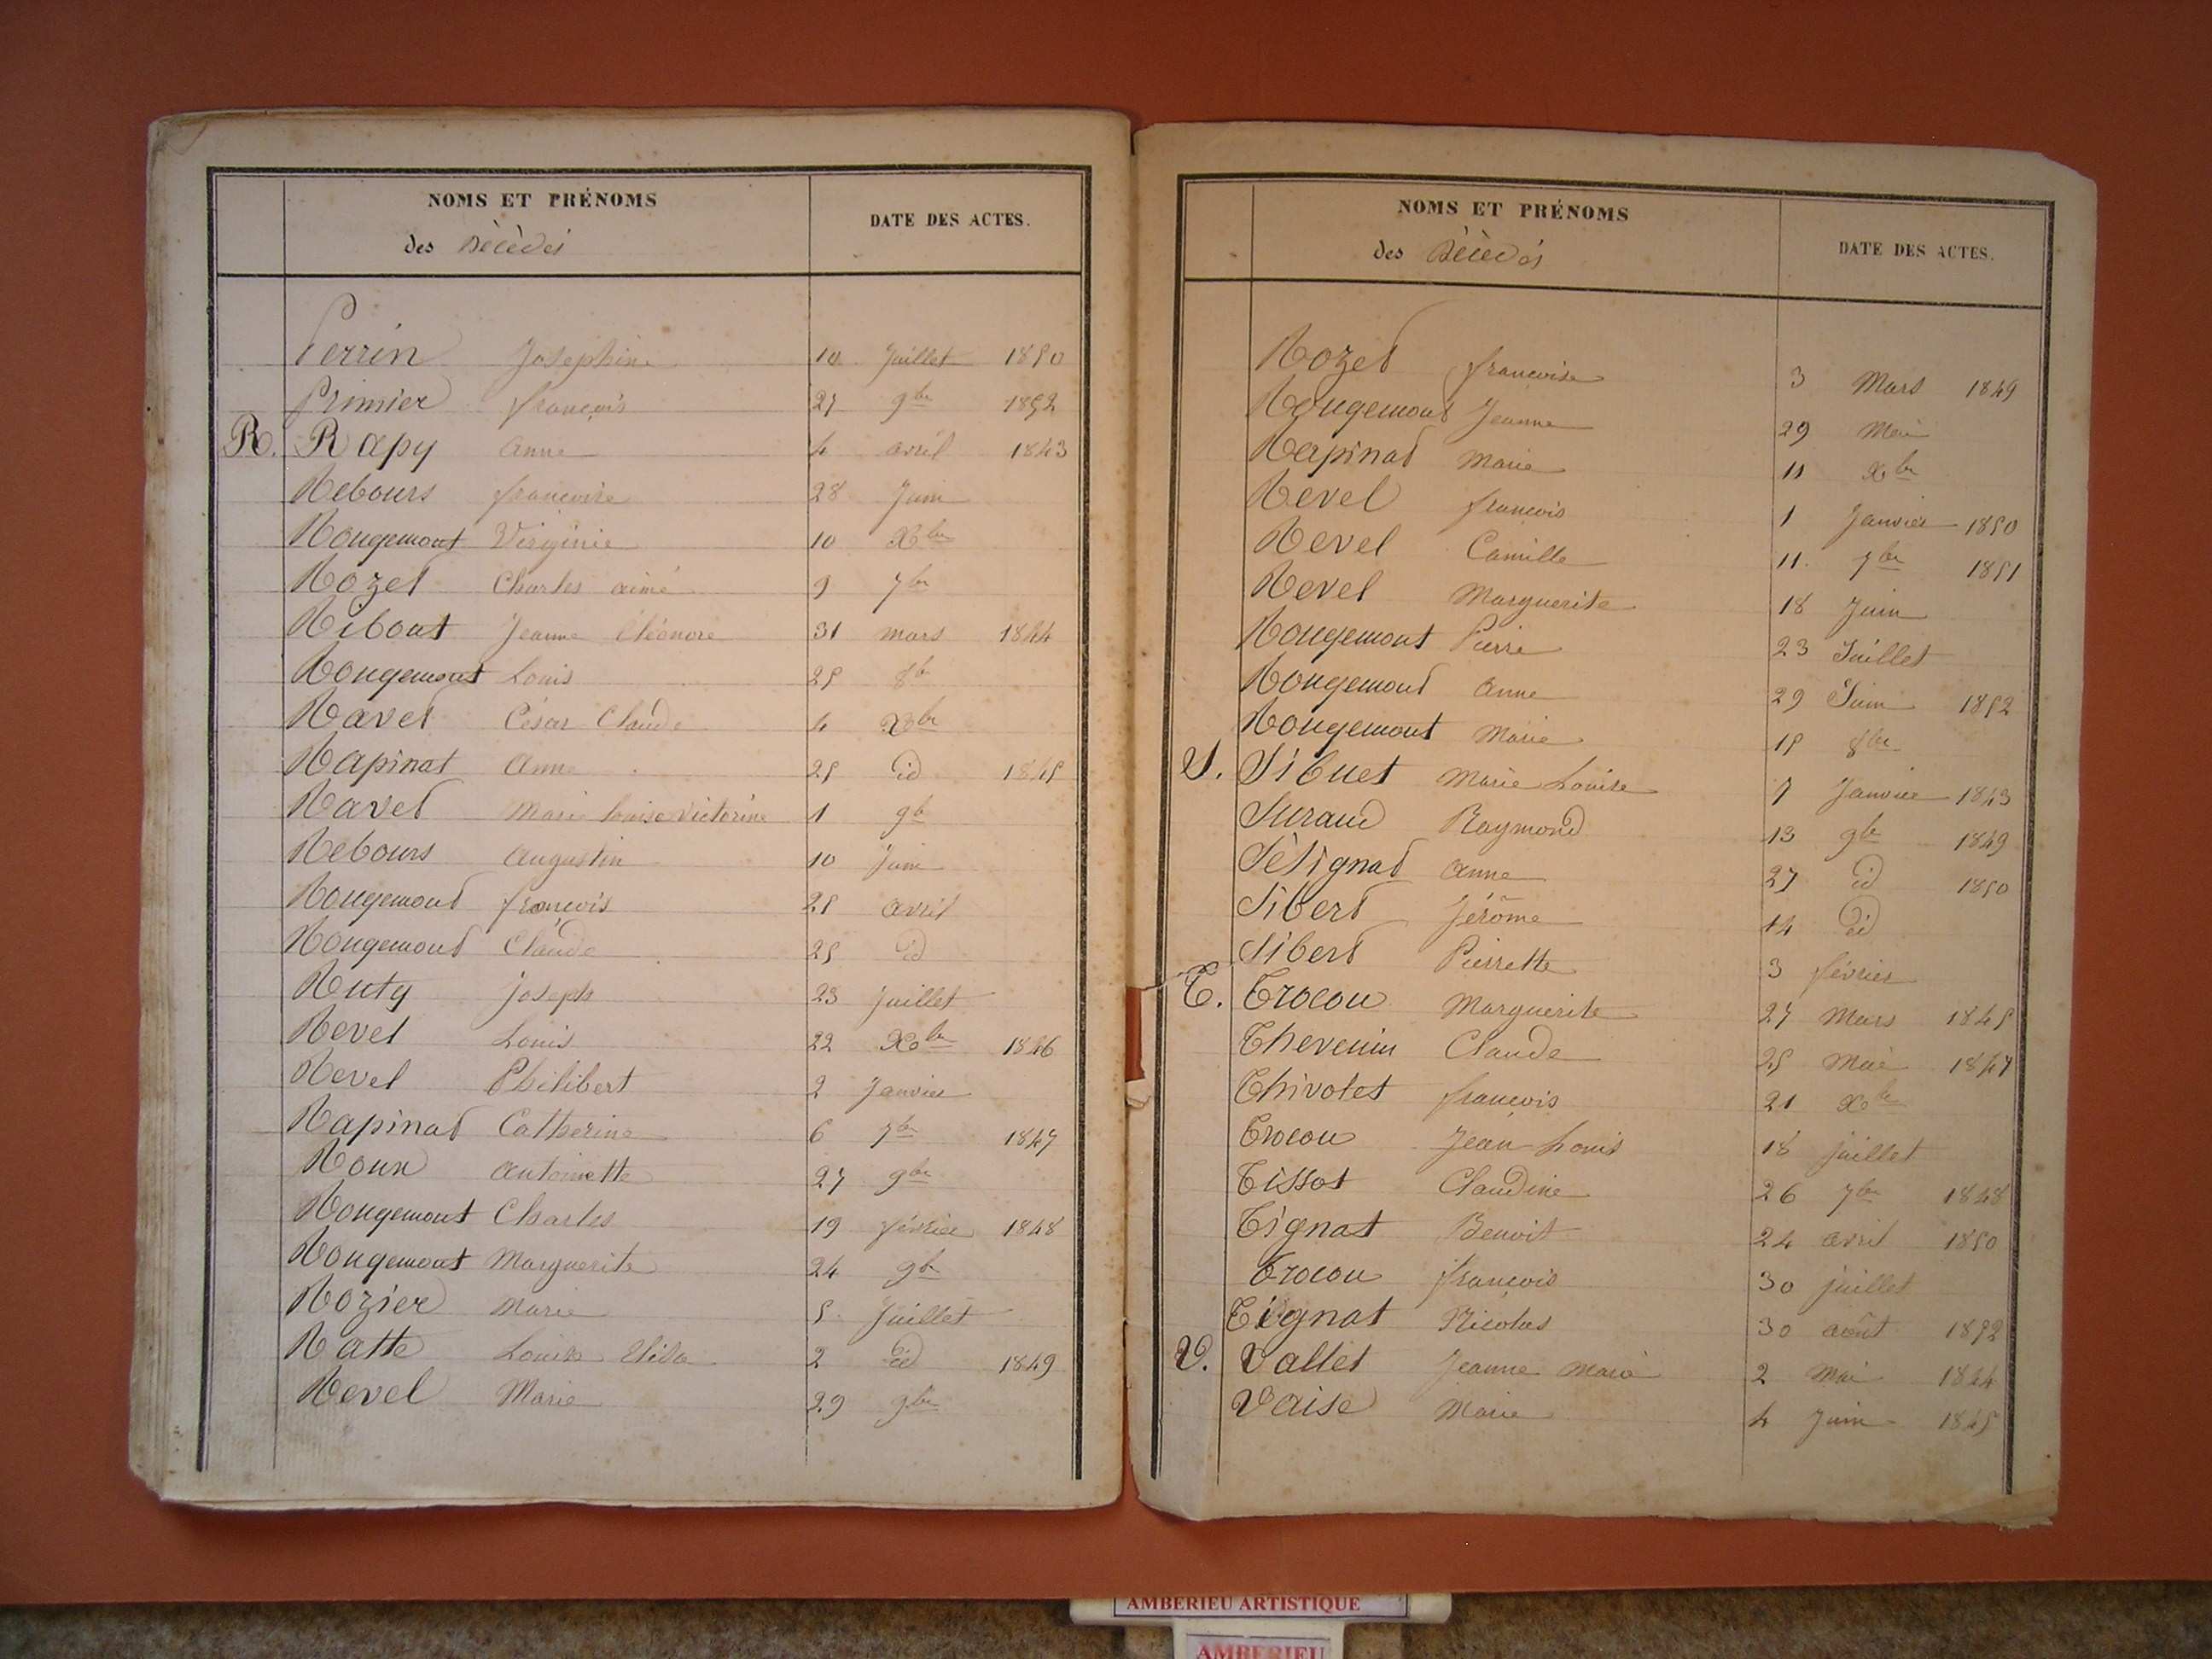 NOMS ET PRÉNOMS
des Décédés
DATE DES ACTES.
Perrin Joséphine 10 Juillet 1850
Primier françois 27 9bre 1852
R. Rapy Anne 4 avril 1843
Rebours françoise 28 Juin
Rougemont Virginie 10 Xbre
Rozet Charles aimé 9 7bre
Ribout Jeanne Eléonore 31 mars 1844
Rougemont Louis 25 8b
Ravet César Claude 4 Xbre
Rapinat Anne 25 id 1845
Ravet Marie Louise Victorine 1 9b
Rebours Augustin 10 Juin
Rougemont françois 25 avril
Rougemont Claude 25 id
Ruty Joseph 23 Juillet
Revet Louis 22 Xbre 1846
Revel Philibert 2 Janvier
Rapinat Catherine 6 7bre 1847
Roux Antoinette 27 9bre
Rougemont Charles 19 février 1848
Rougemont Marguerite 24 9b
Rozier Marie 5 Juillet
Ratte Louise Elisa 2 id 1849
Revel Marie 29 9bre
NOMS ET PRÉNOMS
des Décédés
DATE DES ACTES.
Rozet françoise 3 Mars 1849
Rougemont Jeanne 29 Mai
Rapinat Marie 11 Xbre
Revel françois 1 Janvier 1850
Revel Camille 11. 7bre 1851
Revel Marguerite 18 Juin
Rougemont Pierre 23 Juillet
Rougemont Anne 29 Juin 1852
Rougemont Marie 15 8bre
S. Sibuet Marie Louise 7 Janvier 1843
Suraud Raymond 13 9bre 1849
Sétignat Anne 27 id 1850
Sibert Jérôme 14 id
Sibert Pierrette 3 février
T. Trocou Marguerite 27 Mars 1845
Thevenin Claude 25 Mai 1847
Thivolet françois 21 Xbre
Trocou Jean Louis 18 juillet
Tissot Claudine 26 7bre 1848
Tignat Benoit 24 avril 1850
Trocou françois 30 juillet
Tignat Nicolas 30 août 1852
V. Vallet Jeanne Marie 2 Mai 1844
Vaise Marie 4 Juin 1845
AMBERIEU ARTISTIQUE
AMBERIEU